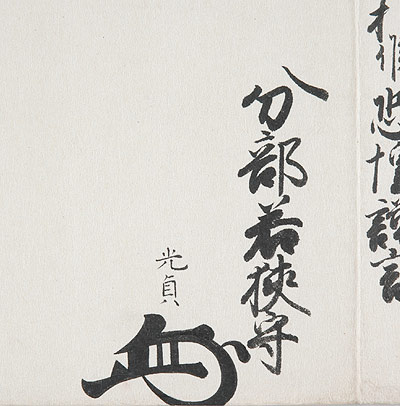 惶謹言
分部若狭守
光貞